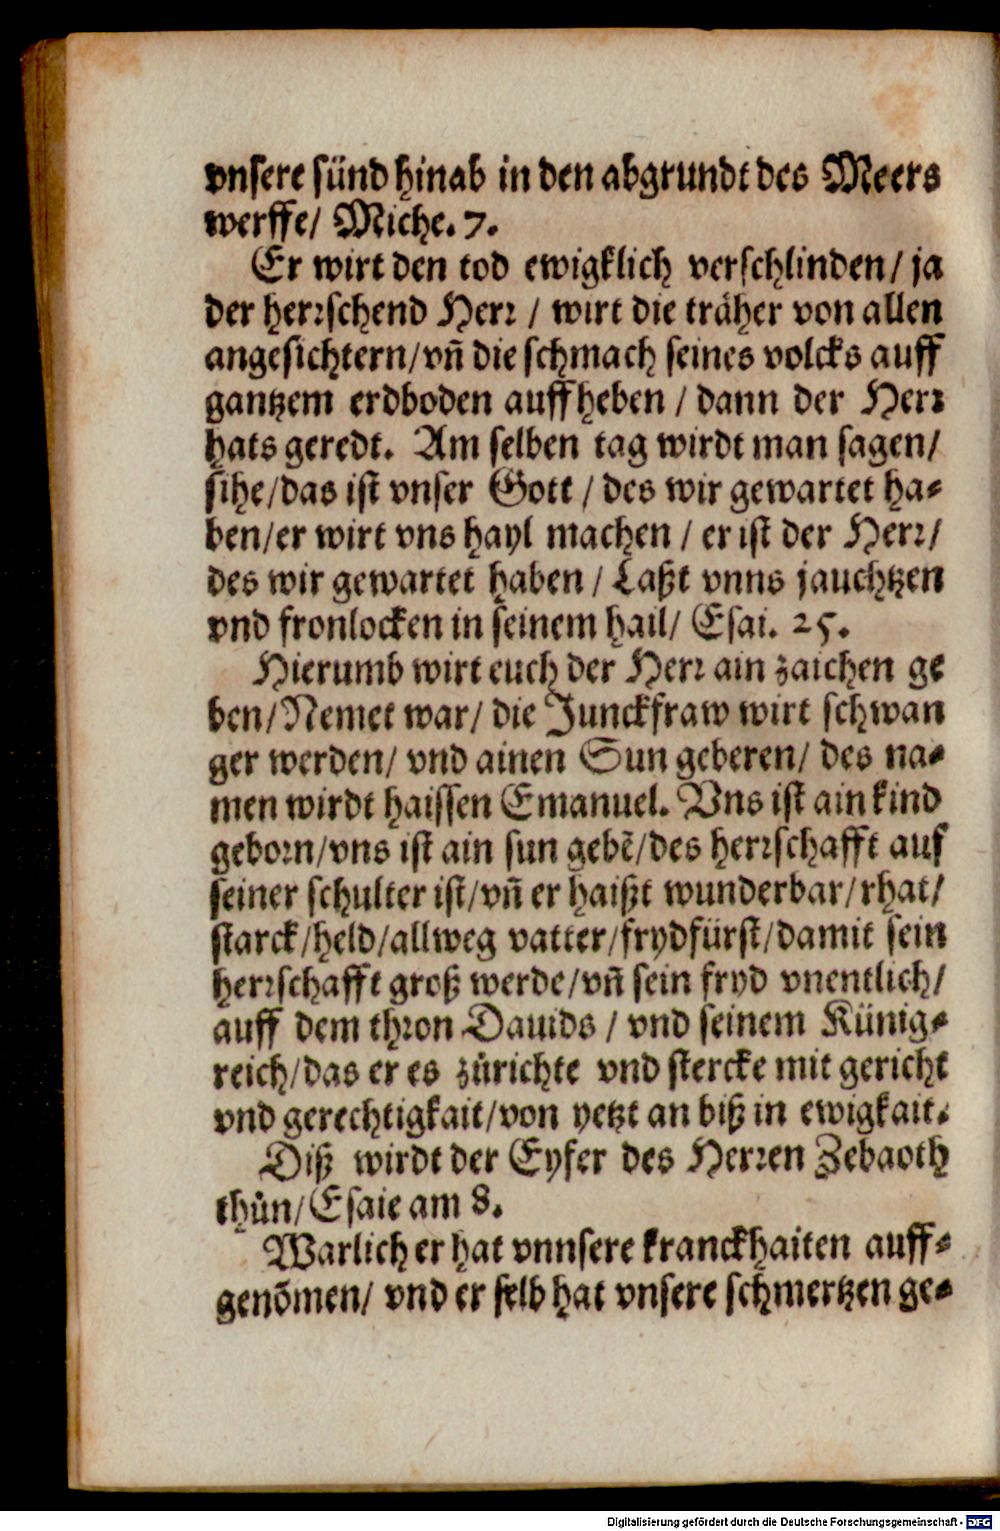 vnsere sünd hinab in den abgrundt des Meers
werffe/ Miche. 7.
Er wirt den tod ewigklich verschlinden/ ja
der herrschend Herr / wirt die träher von allen
angesichtern/vñ die schmach seines volcks auff
gantzem erdboden auffheben / dann der Herr
hats geredt. Am selben tag wirdt man sagen/
sihe/das ist vnser Gott / des wir gewartet ha-
ben/er wirt vns hayl machen / er ist der Herr/
des wir gewartet haben / Laßt vnns jauchtzen
vnd fronlocken in seinem hail/ Esai. 25.
Hierumb wirt euch der Herr ain zaichen ge
ben/Nemet war/ die Junckfraw wirt schwan
ger werden/ vnd ainen Sun geberen/ des na-
men wirdt haissen Emanuel. Vns ist ain kind
geborn/vns ist ain sun gebẽ/des herrschafft auf
seiner schulter ist/vñ er haißt wunderbar/rhat/
starck/held/allweg vatter/frydfürst/damit sein
herrschafft groß werde/vñ sein fryd vnentlich/
auff dem thron Dauids / vnd seinem Künig-
reich/das er es zůrichte vnd stercke mit gericht
vnd gerechtigkait/von yetzt an biß in ewigkait.
Diß wirdt der Eyfer des Herren Zebaoth
thůn/Esaie am 8.
Warlich er hat vnnsere kranckhaiten auff-
genõmen/ vnd er selb hat vnsere schmertzen ge-
Digitalisierung gefördert durch die Deutsche Forschungsgemeinschaft - DFG